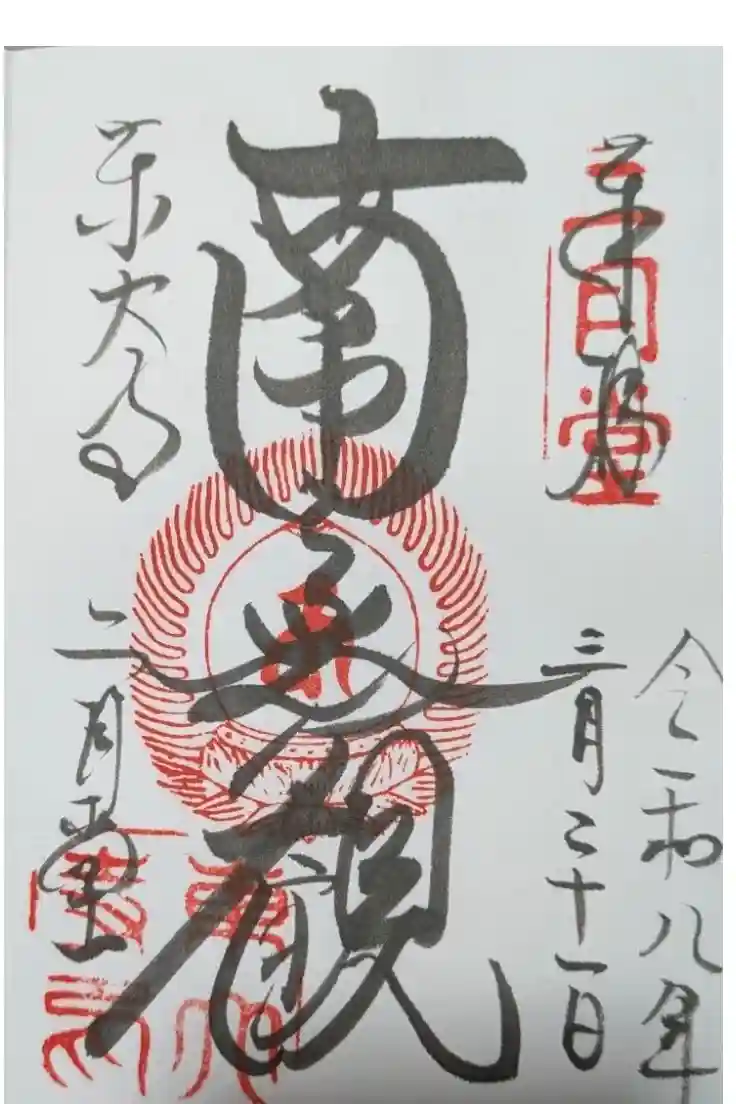 令和八年
三月二十一日
奉拝
二月堂
南無観
東大寺
二月堂